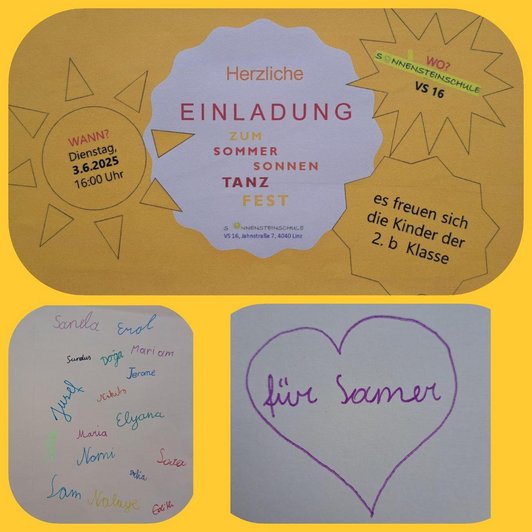 Herzliche
EINLADUNG
ZUM
SOMMER
SONNEN
TANZ
FEST
SONNENSTEINSCHULE
VS 16, Jahnstraße 7, 4040 Linz
WANN?
Dienstag,
3.6.2025
16:00 Uhr
WO?
SONNENSTEINSCHULE
VS 16
es freuen sich
die Kinder der
2. b Klasse
Sanela Erol
Sundus Doğa Mariam
Jerome
Jusef
Elyana
Maria
Nomi
Sam
Edith
für Samer